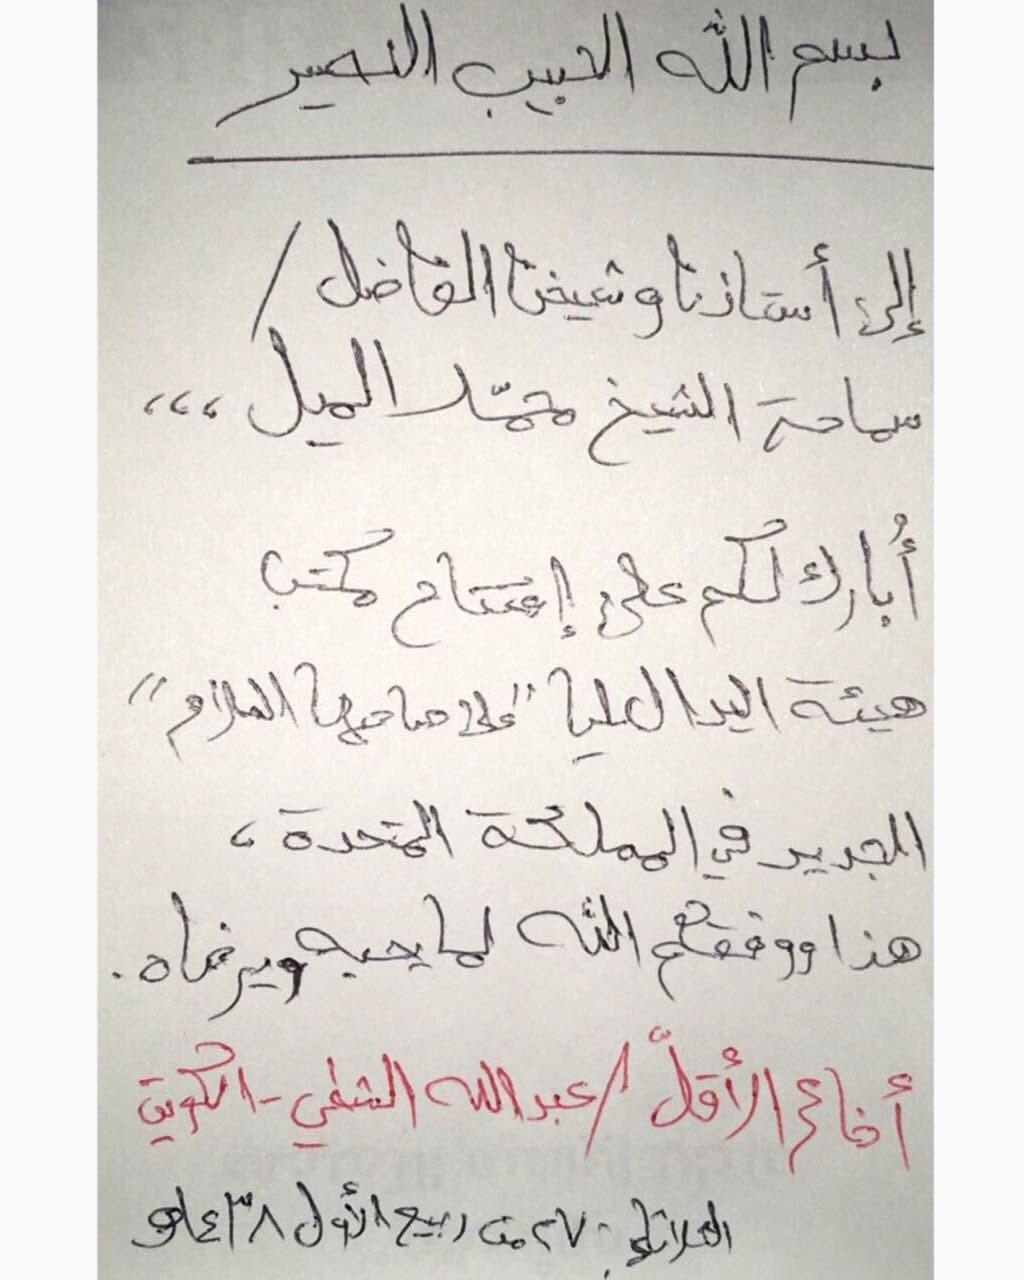 بسم الله الحبيب النصير
إلى أستاذنا وشيخنا الفاضل /
سماحة الشيخ محمّد الميل ،،،
أُبارك لكم على إفتتاح مكتب
هيئة اليد العليا "على صاحبها السلام"
الجديد في المملكة المتحدة ،
هذا ووفقكم الله لما يحبه ويرضاه .
أخاكم الأقلّ / عبدالله - الكويت
الثلاثاء ٢٧ من ربيع الأول ١٤٣٨هـ